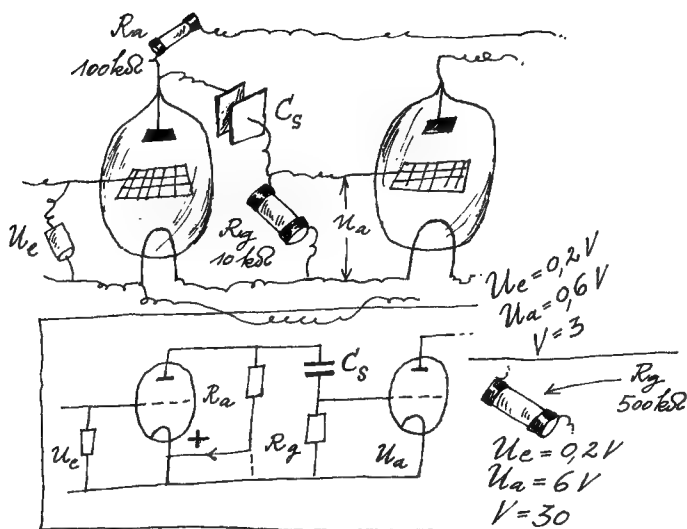 Ra
100kΩ
Cs
Ue
Rg
10kΩ
Ua
Ue=0,2V
Ua=0,6V
V=3
Ra
+
Cs
Ue
Rg
Ua
Rg
500kΩ
Ue=0,2V
Ua=6V
V=30